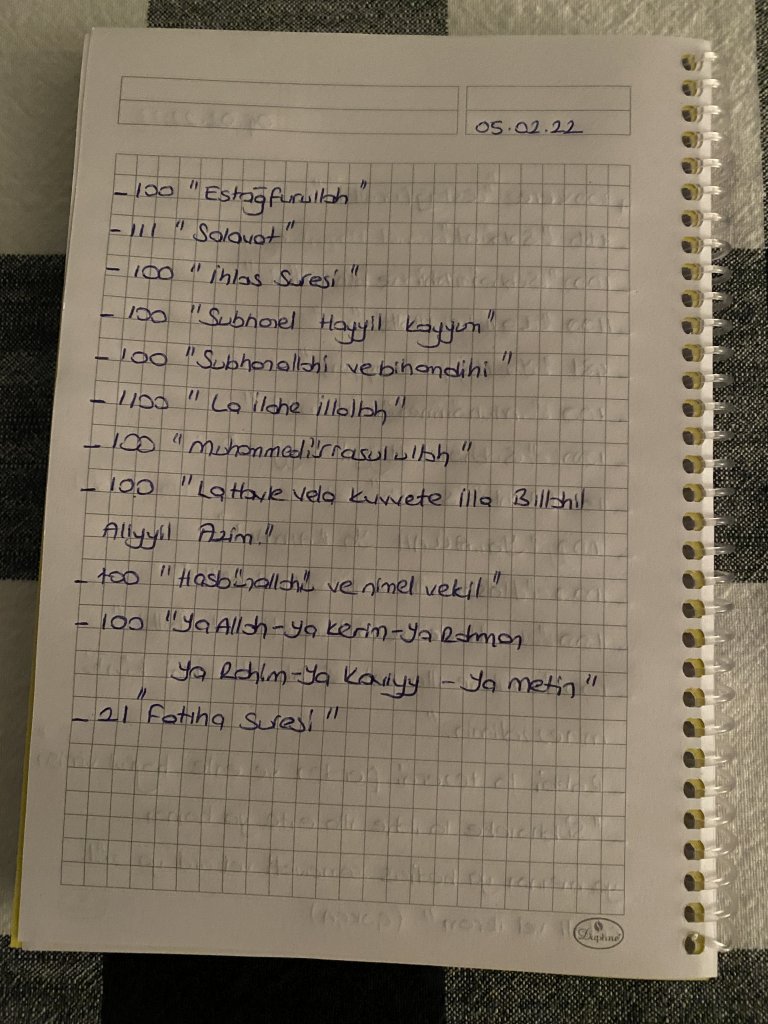 05.02.22
- 100 "Estağfurullah"
- 111 "Salavat"
- 100 "ihlas Suresi"
- 100 "Subhanel Hayyil Kayyum"
- 100 "Subhanallahi vebihamdihi"
- 1100 "La ilahe illallah"
- 100 "Muhammedürrasulullah"
- 100 "La Havle vela kuvvete illa Billahil
Aliyyil Azim."
- 100 "Hasbünallahü ve nimel vekil"
- 100 "Ya Allah-Ya Kerim-Ya Rahman
Ya Rahim-Ya Kaviyy - Ya metin"
- 21 "Fatiha Suresi"
Daphne